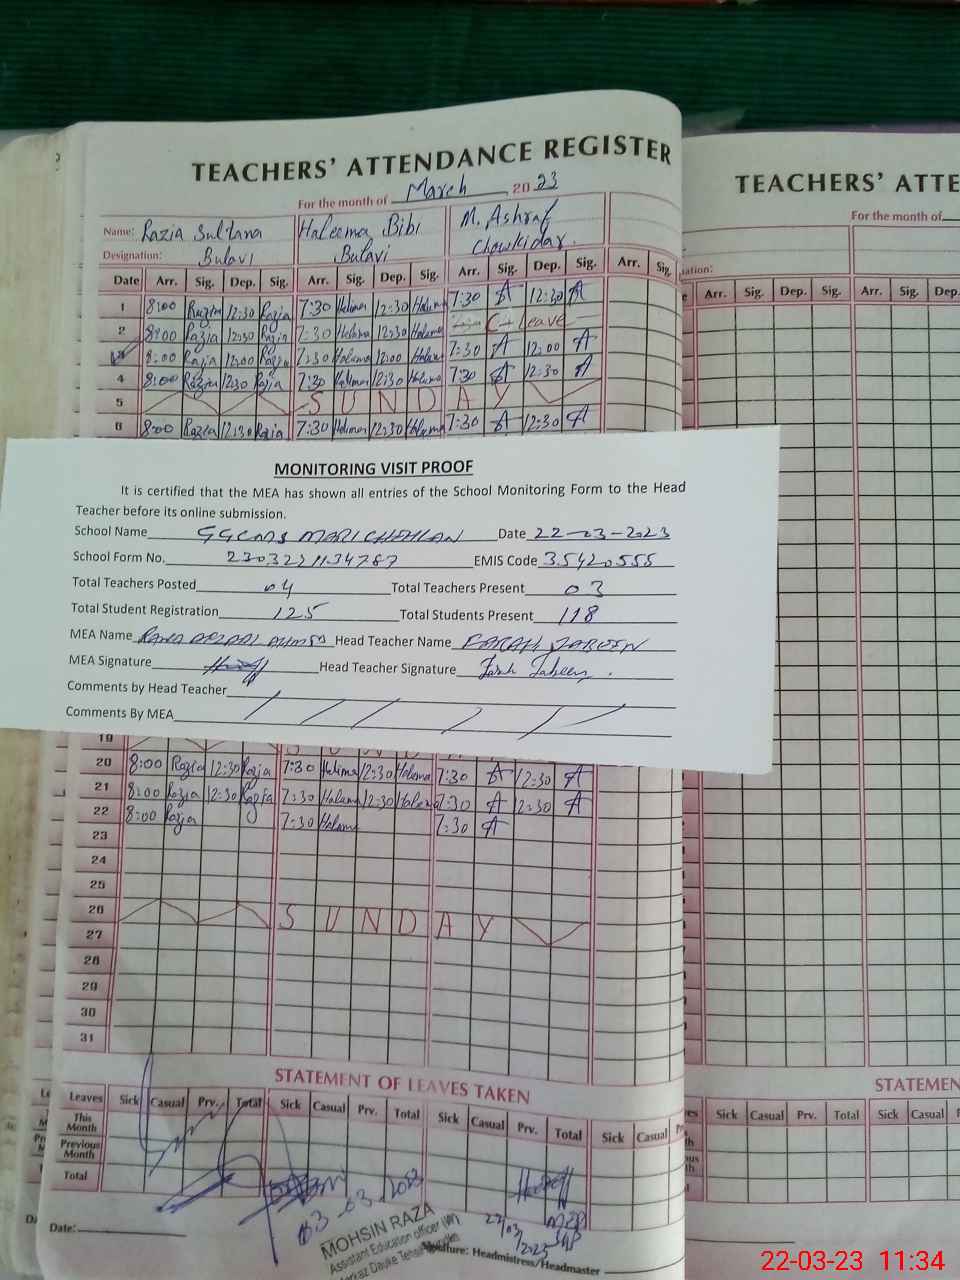 TEACHERS' ATTENDANCE REGISTER
For the month of March 2023
Name: Razia Sultana Haleema Bibi M. Ashraf
Designation: Bulavi Bulavi Chowkidar
Date Arr. Sig. Dep. Sig. Arr. Sig. Dep. Sig. Arr. Sig. Dep. Sig. Arr. Sig.
1 8:00 Razia 12:30 Razia 7:30 Halima 12:30 Halima 7:30 A 12:30 A
2 8:00 Razia 12:30 Razia 7:30 Halima 12:30 Halima C-Leave
8:00 Razia 12:00 Razia 7:30 Halima 12:00 Halima 7:30 A 12:00 A
4 8:00 Razia 12:30 Razia 7:30 Halima 12:30 Halima 7:30 A 12:30 A
5 SUNDAY
6 8:00 Razia 12:30 Razia 7:30 Halima 12:30 Halima 7:30 A 12:30 A
MONITORING VISIT PROOF
It is certified that the MEA has shown all entries of the School Monitoring Form to the Head
Teacher before its online submission.
School Name GGCMS MARICHEHLAN Date 22-03-2023
School Form No. EMIS Code 35420555
Total Teachers Posted 04 Total Teachers Present 03
Total Student Registration 125 Total Students Present 118
MEA Name Head Teacher Name FARAH JABEEN
MEA Signature Head Teacher Signature Farah Jabeen.
Comments by Head Teacher
Comments By MEA
19
20 8:00 Razia 12:30 Razia 7:30 Halima 12:30 Halima 7:30 A 12:30 A
21 8:00 Razia 12:30 Razia 7:30 Halima 12:30 Halima 7:30 A 12:30 A
22 8:00 Razia 7:30 Halima 7:30 A
23
24
25
26 SUNDAY
27
28
29
30
31
STATEMENT OF LEAVES TAKEN
Leaves Sick Casual Prv. Total Sick Casual Prv. Total Sick Casual Prv. Total Sick Casual
This Month
Previous Month
Total
03-03-2023
22/03/2023
MOHSIN RAZA
Assistant Education officer (W)
Markaz Dauke
Date:
Signature: Headmistress/Headmaster
TEACHERS' ATTE
For the month of
Arr. Sig. Dep. Sig. Arr. Sig. Dep.
STATEMEN
Sick Casual Prv. Total Sick Casual
22-03-23 11:34